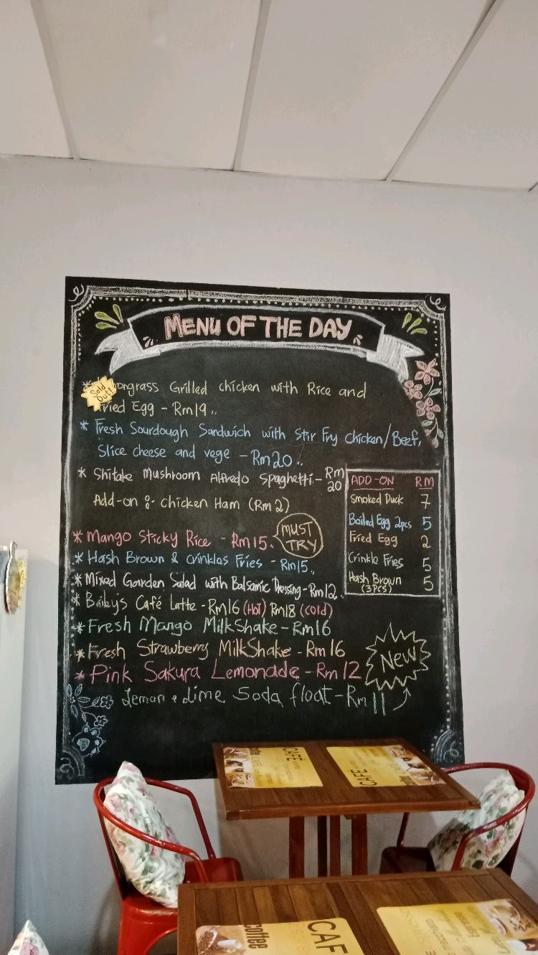 MENU OF THE DAY
Sold Out!
ongrass Grilled chicken with Rice and
Fried Egg - Rm19..
* Fresh Sourdough Sandwich with Stir Fry Chicken/Beef,
Slice cheese and vege - Rm20..
* Shitake Mushroom Alfredo Spaghetti - Rm 20
Add-on : chicken Ham (Rm2)
* Mango Sticky Rice - Rm15.
MUST TRY
* Hash Brown & Crinkles Fries - Rm15..
* Mixed Garden Salad with Balsamic Dressing - Rm12..
* Baileys Café Latte - Rm16 (Hot) Rm18 (cold)
* Fresh Mango MilkShake - Rm16
* Fresh Strawberry MilkShake - Rm16
* Pink Sakura Lemonade - Rm12
Lemon & Lime Soda float - Rm11
New
ADD-ON RM
Smoked Duck 7
Boiled Egg 2pcs 5
Fried Egg 2
Crinkle Fries 5
Hash Brown 5
(3pcs)
CAFE
CAFE
coffee
CAF